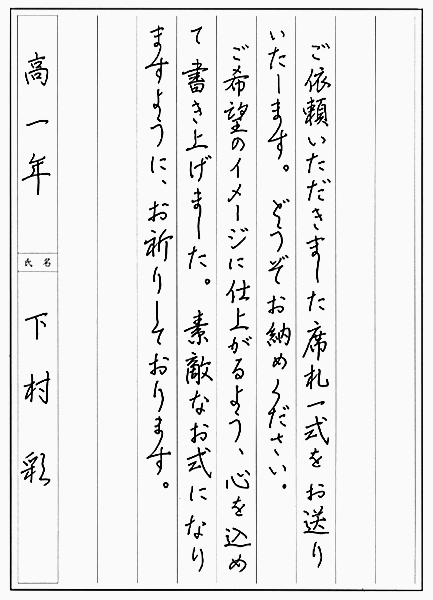 ご依頼いただきました席札一式をお送り
いたします。どうぞお納めください。
ご希望のイメージに仕上がるよう、心を込め
て書き上げました。素敵なお式になり
ますように、お祈りしております。
高一年
氏名
下村彩